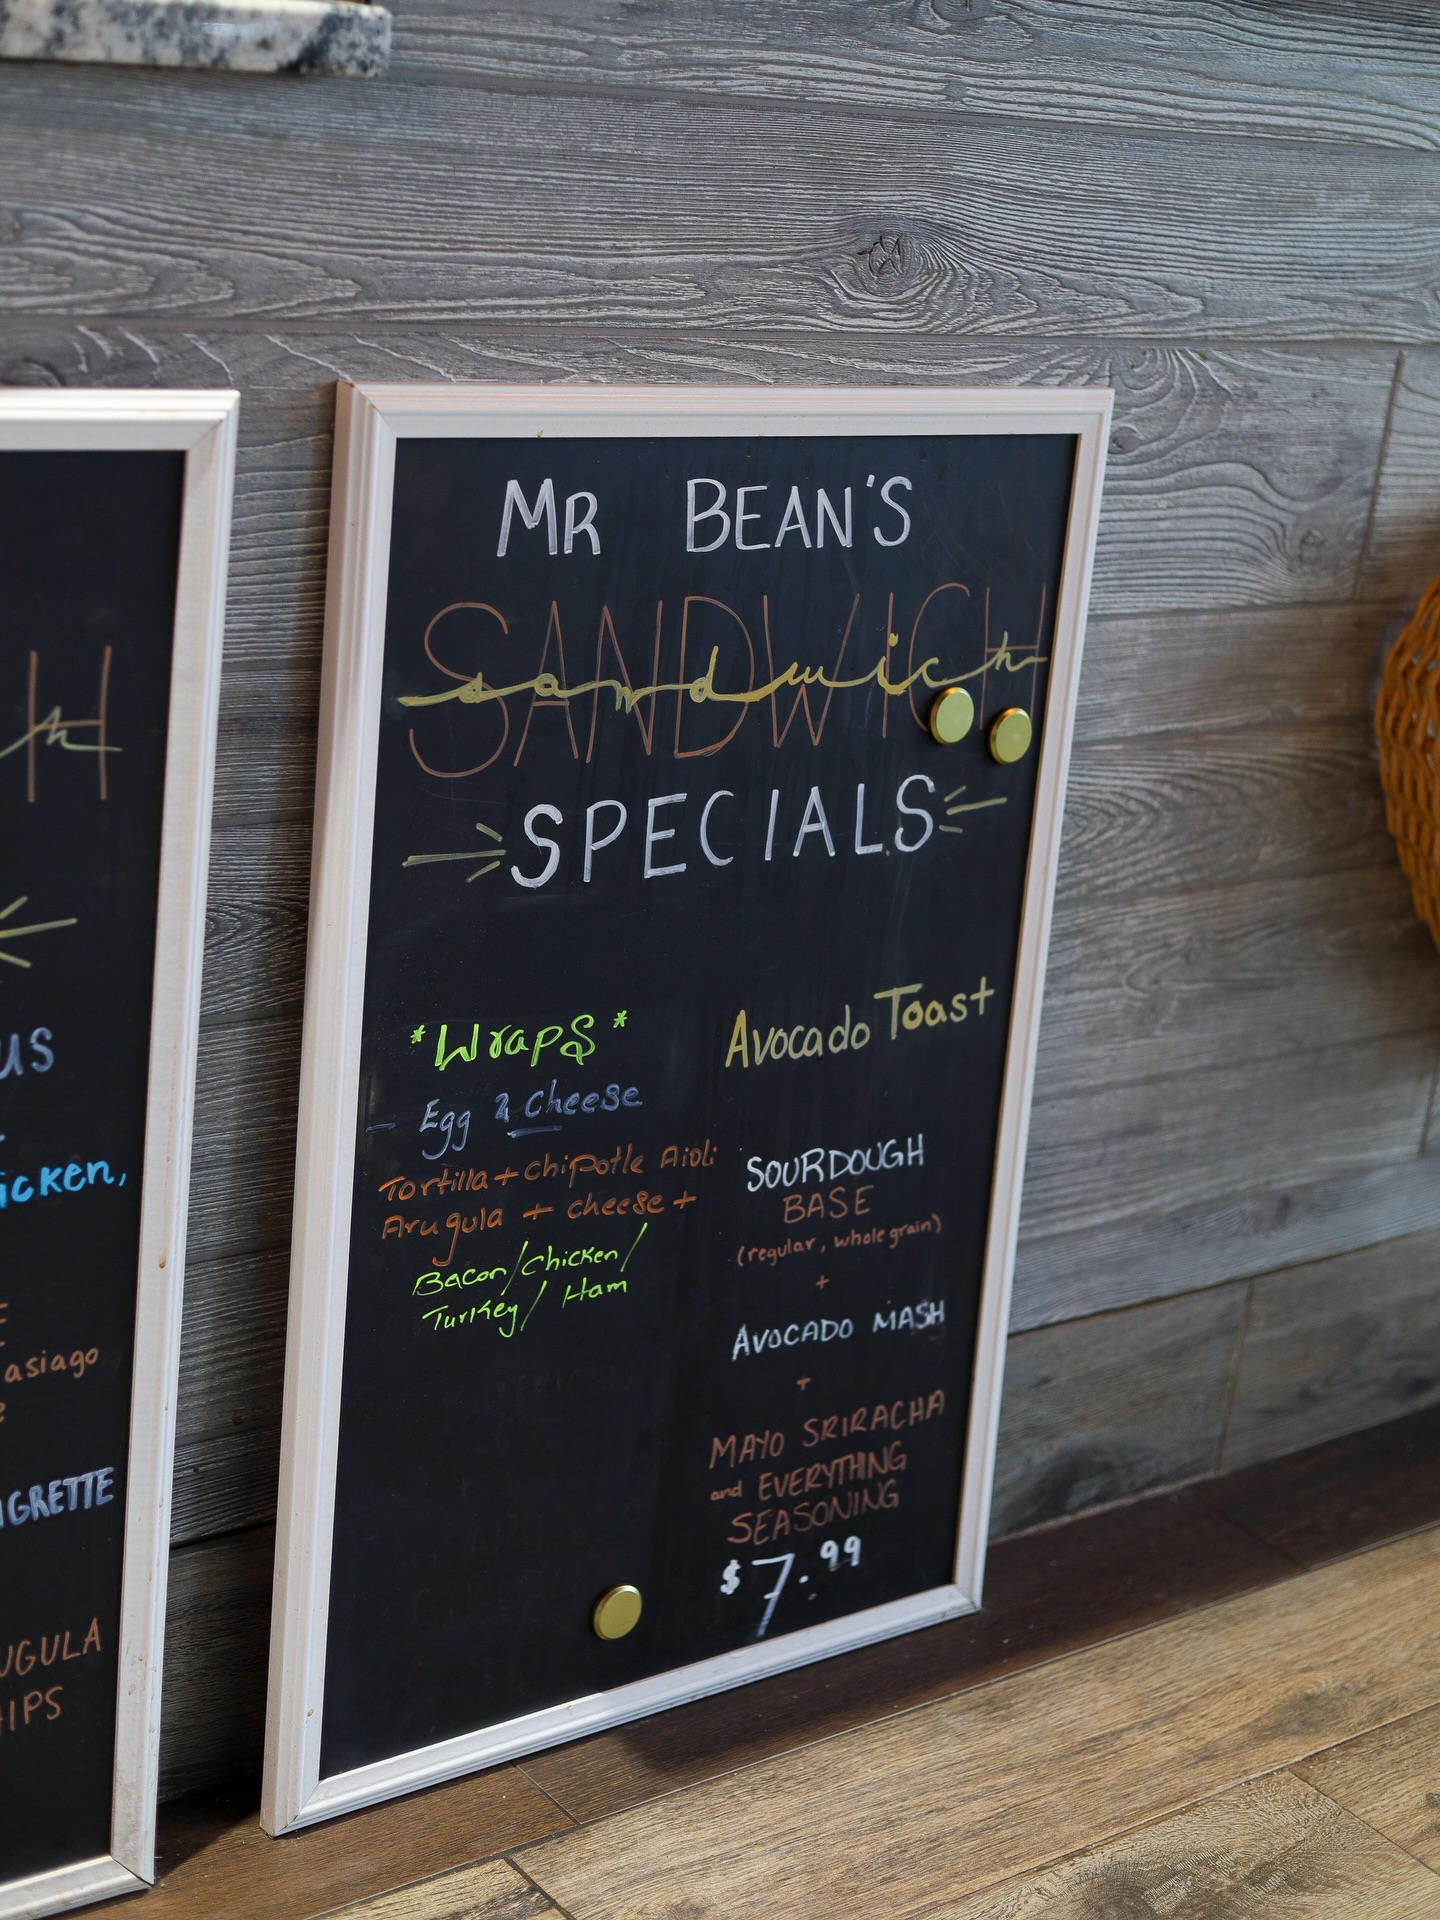 MR BEAN'S
SANDWICH
sandwich
SPECIALS
*Wraps*
- Egg & Cheese
Tortilla + Chipotle Aioli
Arugula + cheese +
Bacon/Chicken/
Turkey/ Ham
Avocado Toast
SOURDOUGH
BASE
(regular, whole grain)
+
AVOCADO MASH
+
MAYO SRIRACHA
and EVERYTHING
SEASONING
$7.99
H
h
us
icken,
asiago
GRETTE
UGULA
HIPS